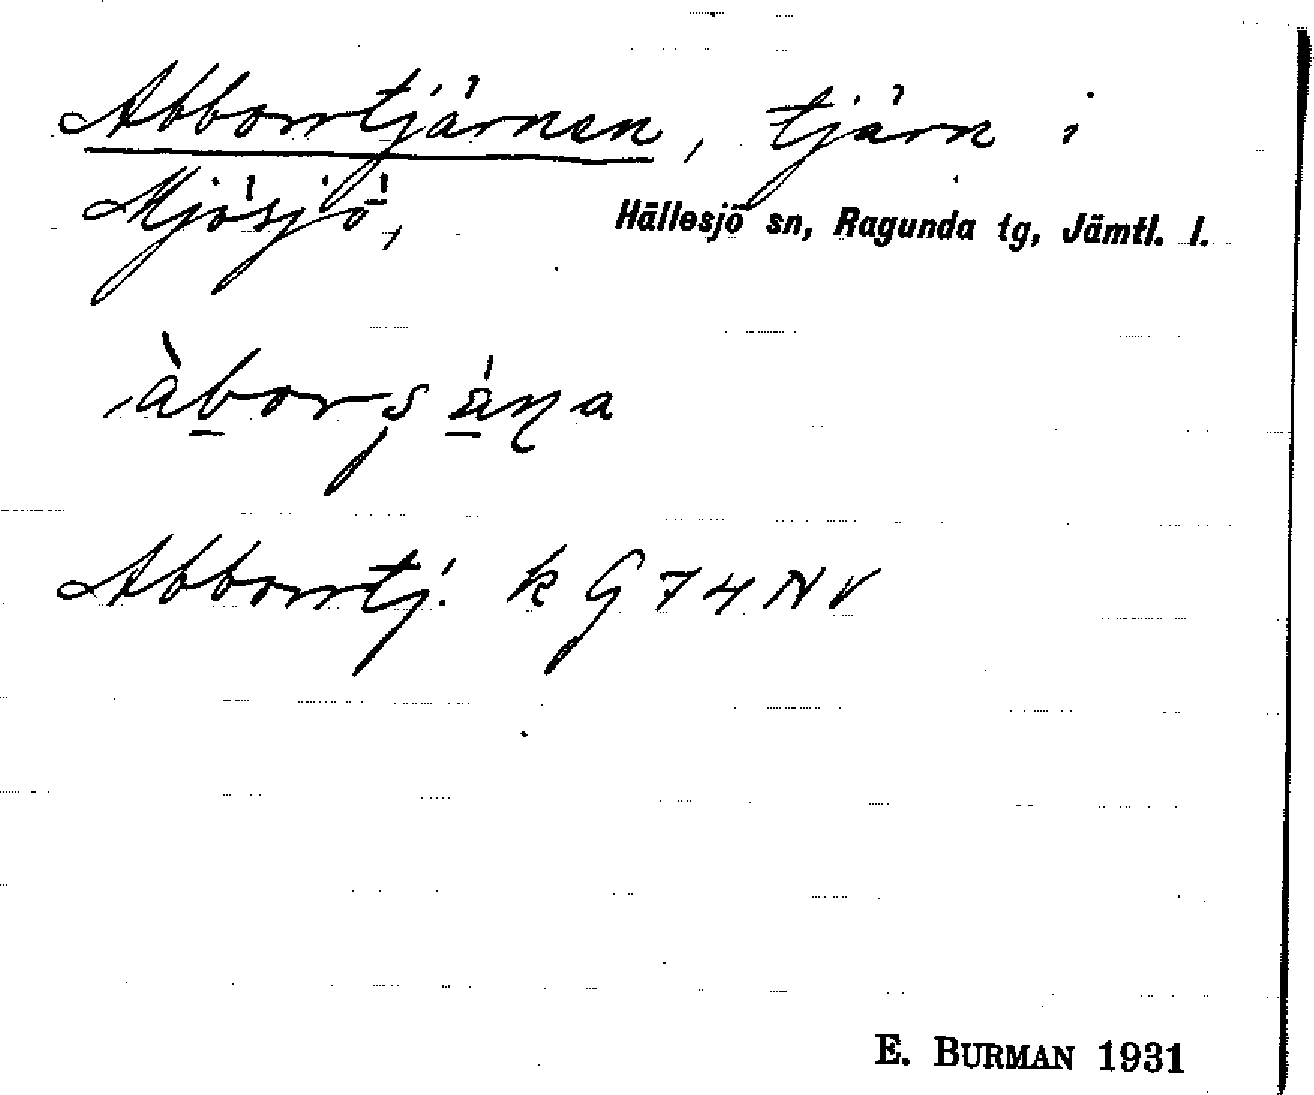 Abborrtjärnen, tjärn i
Mjösjö, Hällesjö sn, Ragunda tg, Jämtl. l.
Abborrtj. k G 74 NV
E. BURMAN 1931